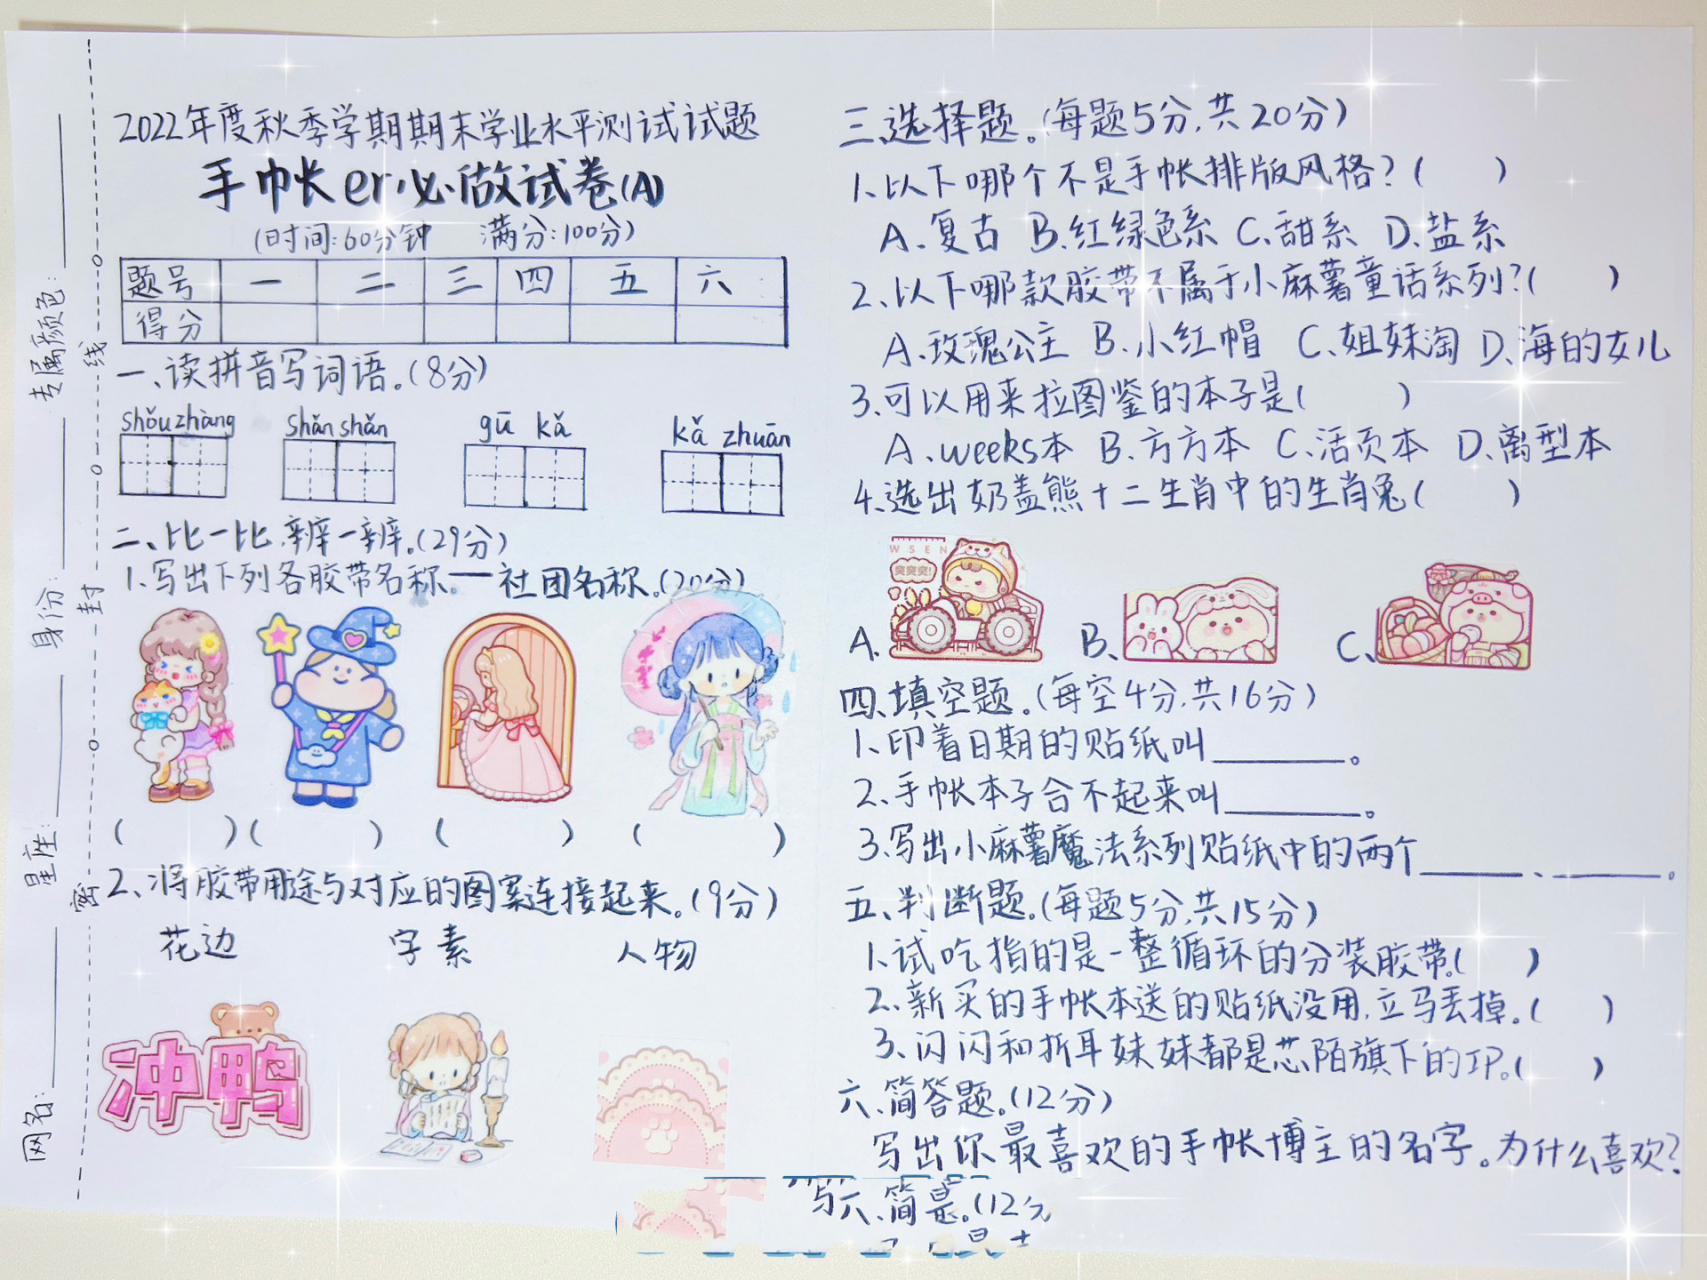 专属颜色:
身份:
星座:
网名:
密 封 线
2022年度秋季学期期末学业水平测试试题
手帐er必做试卷(A)
(时间:60分钟 满分:100分)
题号 一 二 三 四 五 六
得分
一、读拼音写词语。(8分)
shǒu zhàng shǎn shǎn gū kǎ kǎ zhuān
二、比一比,辨一辨。(29分)
1.写出下列各胶带名称——社团名称。(20分)
( ) ( ) ( ) ( )
2、将胶带用途与对应的图案连接起来。(9分)
花边 字素 人物
冲鸭
三、选择题。(每题5分,共20分)
1、以下哪个不是手帐排版风格?( )
A.复古 B.红绿色系 C.甜系 D.盐系
2、以下哪款胶带不属于小麻薯童话系列?( )
A.玫瑰公主 B.小红帽 C.姐妹淘 D.海的女儿
3.可以用来拉图鉴的本子是( )
A.weeks本 B.方方本 C.活页本 D.离型本
4.选出奶盖熊十二生肖中的生肖兔( )
WSEN
突突突!
A. B、 C、
四、填空题。(每空4分,共16分)
1、印着日期的贴纸叫______。
2.手帐本子合不起来叫______。
3.写出小麻薯魔法系列贴纸中的两个______、______。
五、判断题。(每题5分,共15分)
1.试吃指的是一整循环的分装胶带。( )
2.新买的手帐本送的贴纸没用,立马丢掉。( )
3、闪闪和折耳妹妹都是芯陌旗下的IP。( )
六、简答题。(12分)
写出你最喜欢的手帐博主的名字。为什么喜欢?
六、简
(12分